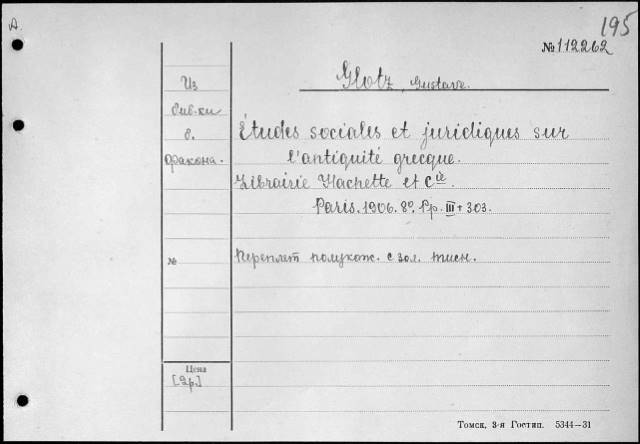 A.
195
№112262
Glotz, Gustave.
Из
биб-ки
б.
фракона.
Études sociales et juridiques sur
l'antiquité grecque.
Librairie Hachette et Cie.
Paris. 1906. 8º. Pp. III + 303.
№
Переплет полукож. с зол. тисн.
Цена
[2р.]
Томск, 3-я Гостип. 5344—31